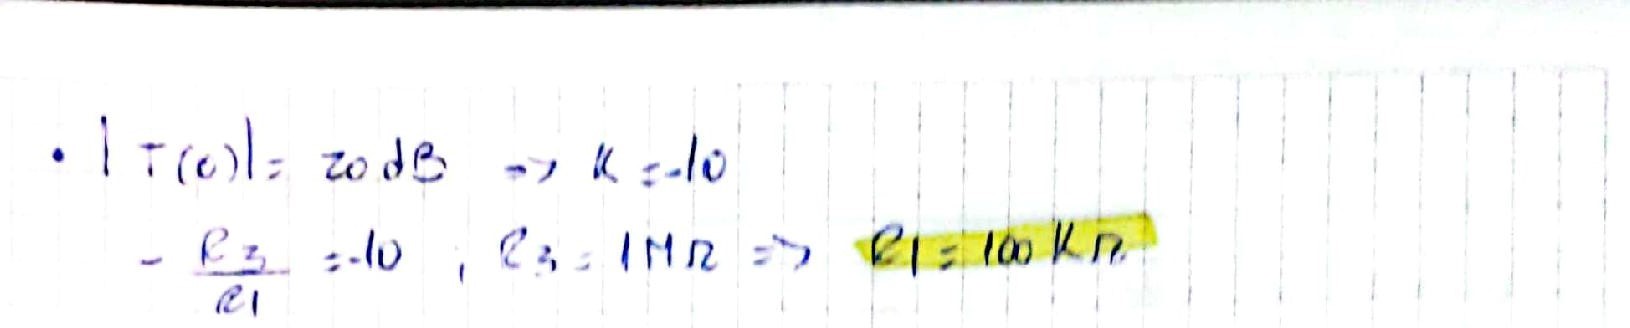 • |T(0)| = 20 dB => K = -10
- R3/R1 = -10 , R3 = 1MΩ => R1 = 100 KΩ